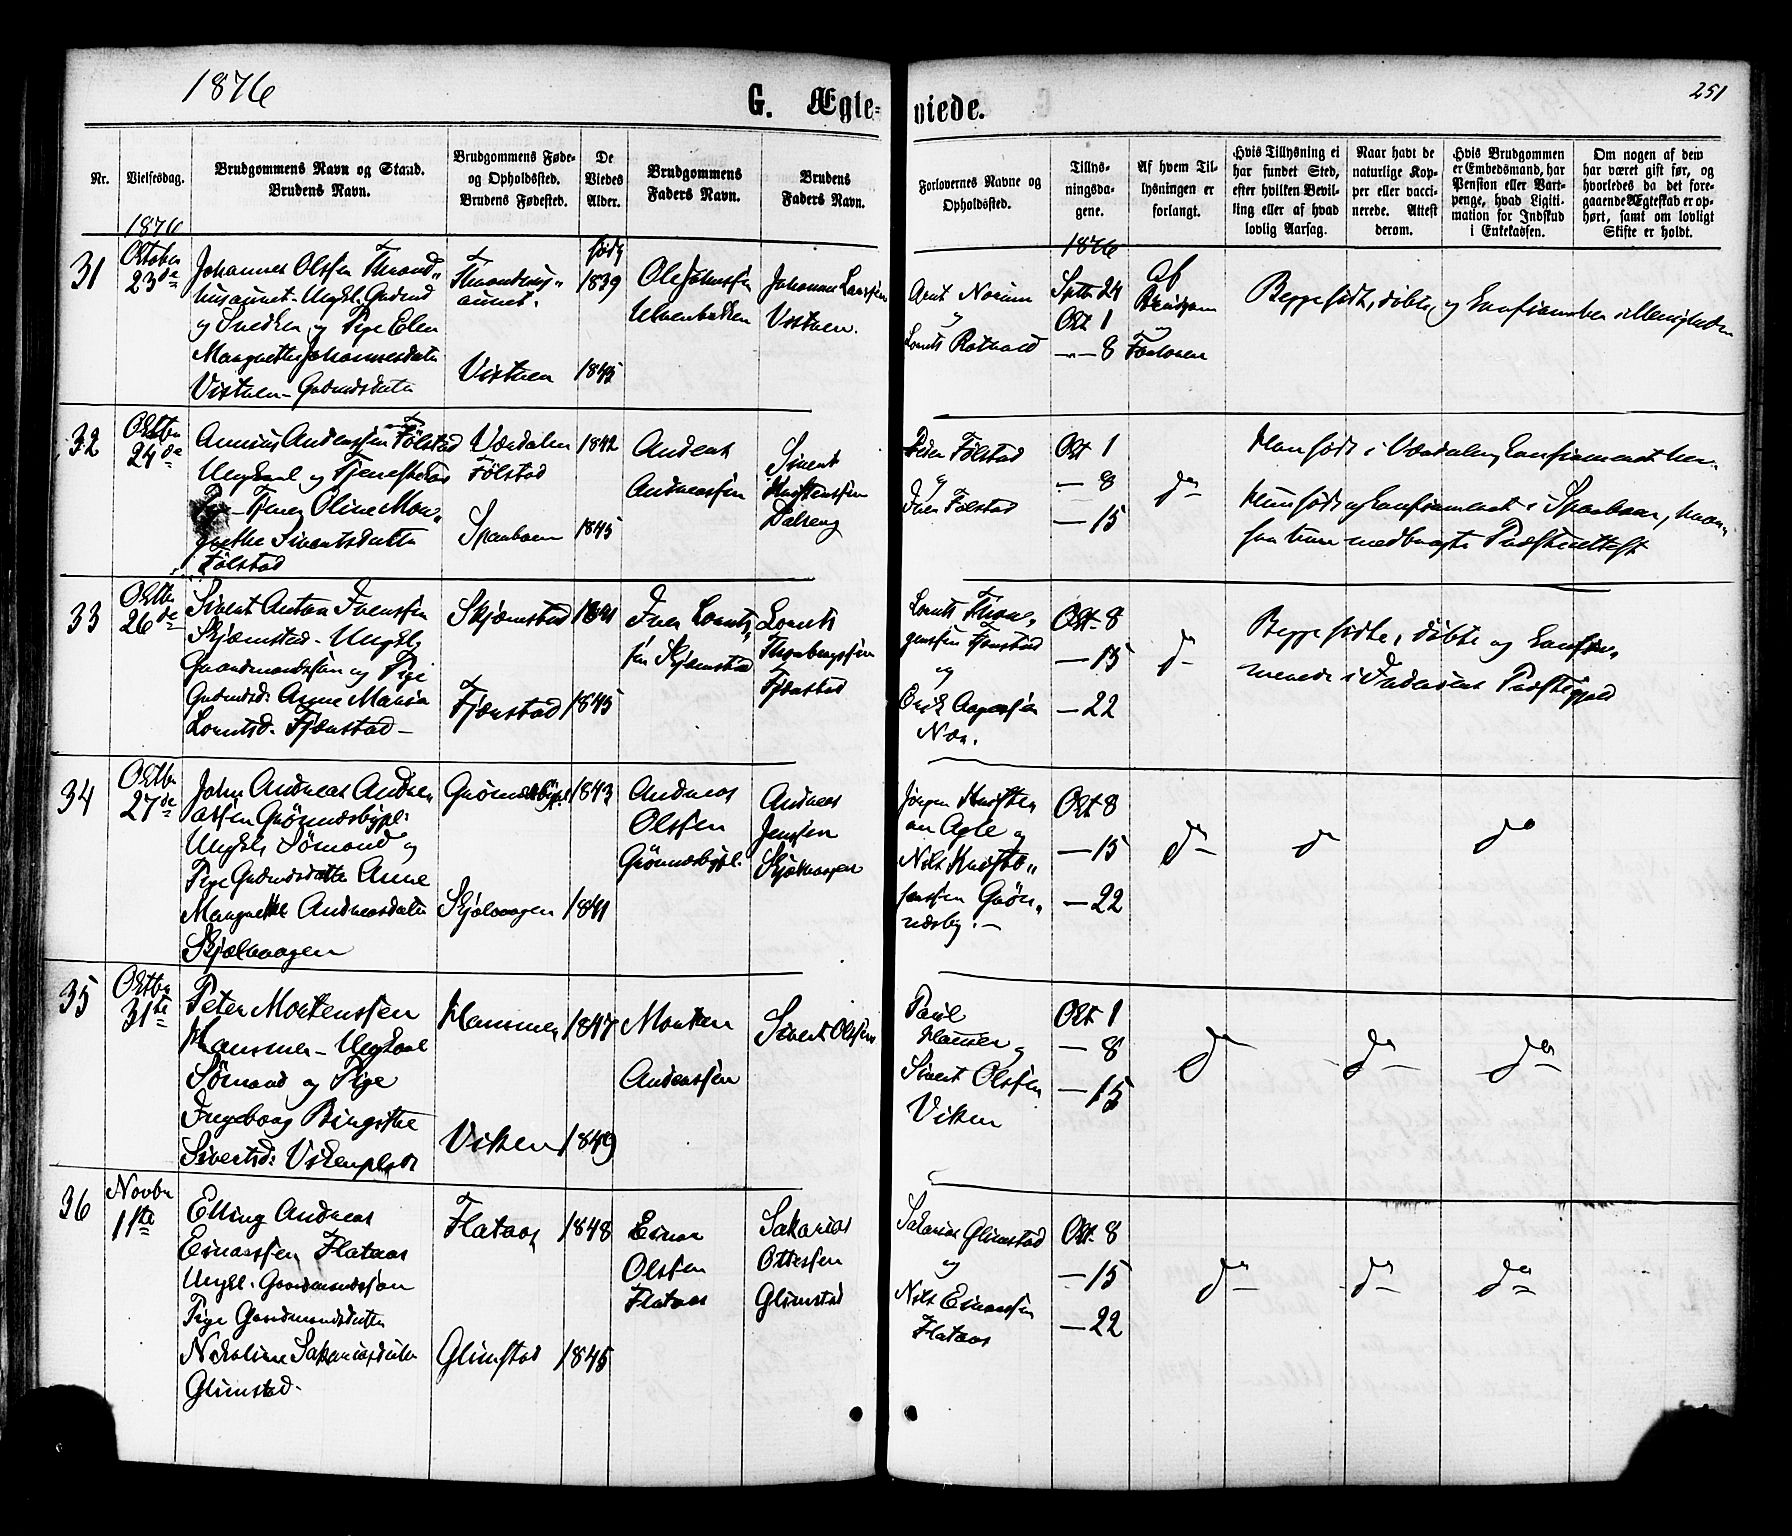 1876
G. Ægteviede.
251
Nr.
Vielsesdag.
Brudgommens Navn og Stand.
Brudens Navn.
Brudgommens Føde-
og Opholdssted.
Brudens Fødested.
De
Viedes
Alder.
Brudgommens
Faders Navn.
Brudens
Faders Navn.
Forlovernes Navne og
Opholdssted.
Tillys-
ningsda-
gene.
Af hvem Til-
lysningen er
forlangt.
Hvis Tillysning ei
har fundet Sted,
efter hvilken Bevil-
ling eller af hvad
lovlig Aarsag.
Naar havt de
naturlige Kop-
per eller vacci-
nerede. Attest
derom.
Hvis Brudgommen
er Embedsmand, har
Pension eller Vart-
penge, hvad Ligiti-
mation for Indskud
i Enkekassen.
Om nogen af dem
har været gift før, og
hvorledes da det fore-
gaaende Ægteskab er op-
hørt, samt om lovligt
Skifte er holdt.
1876
31
October
23de
Johannes Olssen Trond-
husaunet. Ungkl. Gaardm
og Snedker og Pige Elen
Margrethe Johannesdatter
Vistven
Vistven
født
1839
1845
Ole Johnssen
Ulvenbakken
Johannes Larssen
Vistven.
Arnt Norum
og
Lorents Rotvold
1876
Septbr 24
Oct 1
— 8
Af
Brudgom
og
Forlover
Begge fødte, døbte, og Confirmerede i Menigheden
32
Octbr
24de
Andenssen Følstad
Ungkarl og Tjenestekar
Pige Tjener Oline Mar-
grethe Sivertsdatter
Følstad
Værdalen
Følstad
Sparboen
1842
1845
Andreas
Andreassen
Sivert
Dalseng
Peder Følstad
og
Iver Følstad
Oct 1
— 8
— 15
do
Han født i Værdalen, Confirmeret her
Hun født og Confirmeret i Sparboen, hvor-
fra hun medbragte Præsteattest
33
Octbr
26de
Sivert Anton Iverssen
Skjæmstad. Ungkl.
Gaardmandssøn og Pige
Gaardmdsd. Anne Maria
Lorntsd. Fjænstad —
Skjæmstad
Fjænstad
1841
1845
Iver Lornts-
sen Skjæmstad
Lornts
Thorbergssen
Fjænstad
Lornts Thor-
Fjænstad
og
Erik Aagessen
Næs.
Oct. 8
— 15
— 22
do
Begge fødte, døbte og Confir-
merede i Inderøens Præstegjeld
34
Octbr
27de
John Andreas Andre-
assen Grønnæsbypl.
Ungkl. Sømand og
Pige Gaardmdsdatter Anne
Margrethe Andreasdatter
Skjelvaagen
Grønnæsbypl.
Skjelvaagen
1843
1841
Andreas
Olssen
Grønnæsbypl.
Andreas
Jenssen
Skjelvaagen
Jørgen Kristen
Agle og
Nils Kristo-
ferssen Grøn-
næsby. —
Oct. 8
— 15
— 22
do
do
do
35
Octbr
31te
Peter Mortenssen
Hammer — Ungkarl
Sømand og Pige
Ingeborg Birgitte
Sivertsd: Vikenplads
Hammer
Viken
1847
1849
Morten
Andreassen
Sivert Olssen
Paul
Hammer og
Sivert Olssen
Viken
Oct. 1
— 8
— 15
do
do
do
36
Novbr
11te
Elling Andreas
Einarssen Flataas
Ungkl. Gaardmandssøn
Pige Gaardmandsdatter
Nekoline Sakariasdatter
Glimstad.
Flataas
Glimstad
1848
1845
Einar
Olssen
Flataas
Sakarias
Ottessen
Glimstad
Sakarias Glimstad
og
Nils Einarssen
Flataas
Oct. 8
— 15
— 22
do
do
do